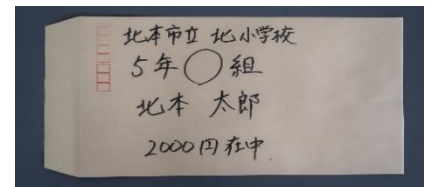 北本市立 北小学校
5年○組
北本 太郎
2000円在中